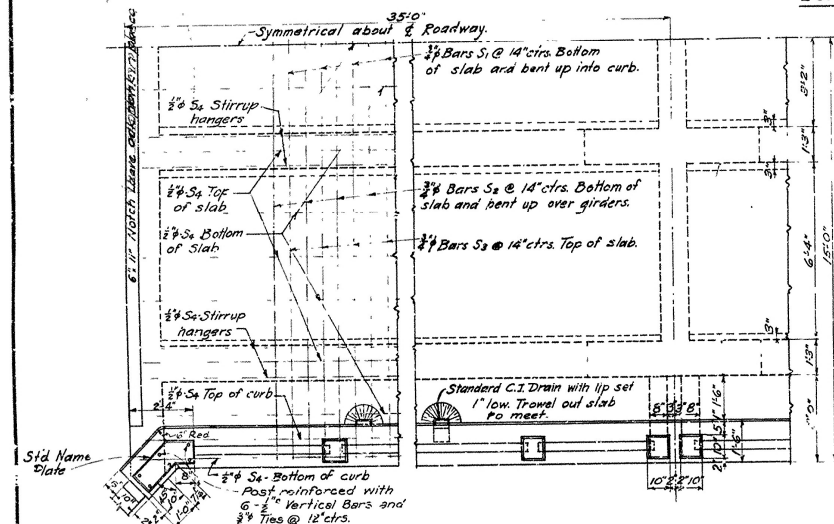 35'-0"
Symmetrical about ℄ Roadway.
¾"ϕ Bars S₁ @ 14"ctrs. Bottom
of slab and bent up into curb.
½"ϕ S₄ Stirrup
hangers
½"ϕ S₄ Top
of slab
½"ϕ S₄ Bottom
of Slab
¾"ϕ Bars S₂ @ 14"ctrs. Bottom of
slab and bent up over girders.
¾"ϕ Bars S₃ @ 14"ctrs. Top of slab.
½"ϕ S₄ Stirrup
hangers
½"ϕ S₄ Top of curb
Standard C.I. Drain with lip set
1" low. Trowel out slab
to meet.
6" 11" Notch Leave
3"
1'-3"
3"
6'-4"
15'-0"
3"
1'-3"
2'-4"
6" Rad
Std Name
Plate
½"ϕ S₄ - Bottom of curb
Post reinforced with
Vertical Bars and
Ties @ 12"ctrs.
8" 3" 3" 8"
1'-6"
5"
10"
2"
1'-6"
10" 2" 2" 10"
8"
10"